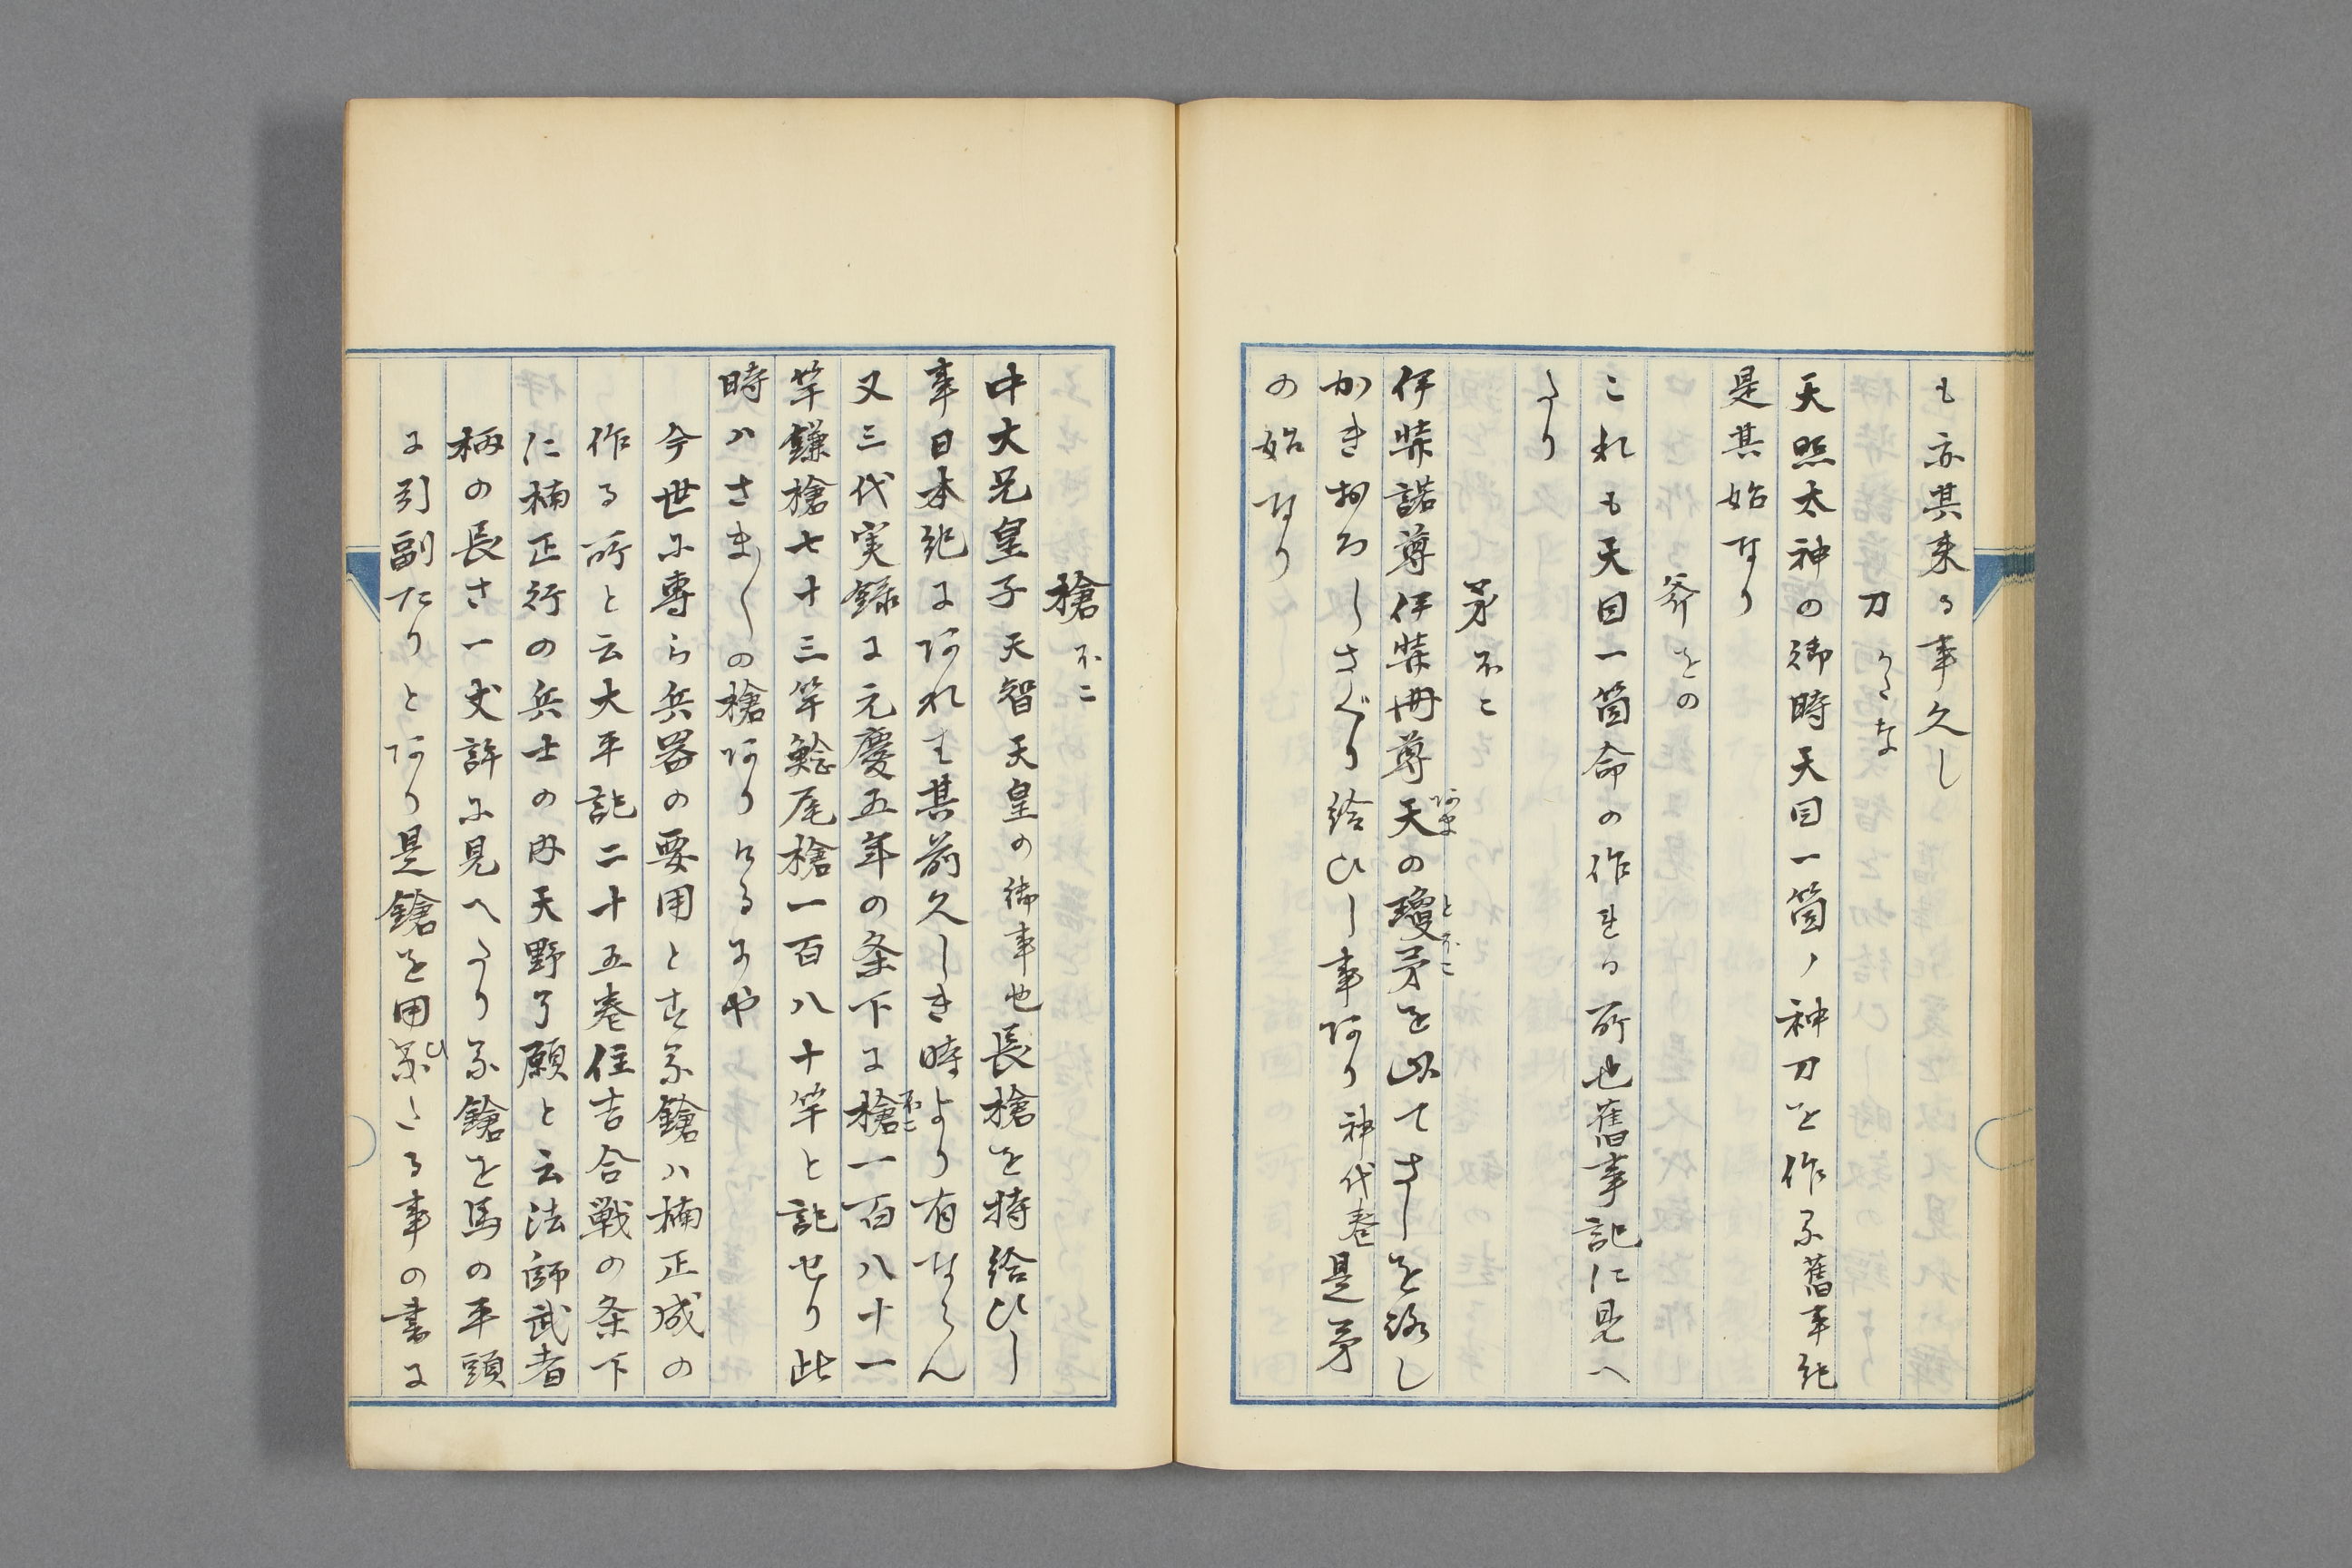 も亦其来る事久し
刀 かたな
天照太神の御時天目一箇ノ神刀を作る舊事紀
是其始なり
斧 をの
これも天目一箇命の作れる所也舊事記に見へ
たり
茅 ほこ
伊弉諾尊伊弉冊尊天の瓊矛を以てさしを路し
かきおろしさぐり給ひし事あり神代巻是矛
の始なり
槍 ほこ
中大兄皇子天智天皇の御事也長槍を持給ひし
事日本紀にあれは其前久しき時より有ならん
又三代実録に元慶五年の条下に槍一百八十一
竿鎌槍七十三竿鯰尾槍一百八十竿と記せり此
時ハさま〳〵の槍ありけるにや
今世に専ら兵器の要用とする鎗ハ楠正成の
作る所と云大平記二十五巻住吉合戦の条下
に楠正行の兵士の内天野了願と云法師武者
柄の長さ一丈許に見へたる鎗を馬の平頭
に引副たりとあり是鎗を用ひたる事の書に